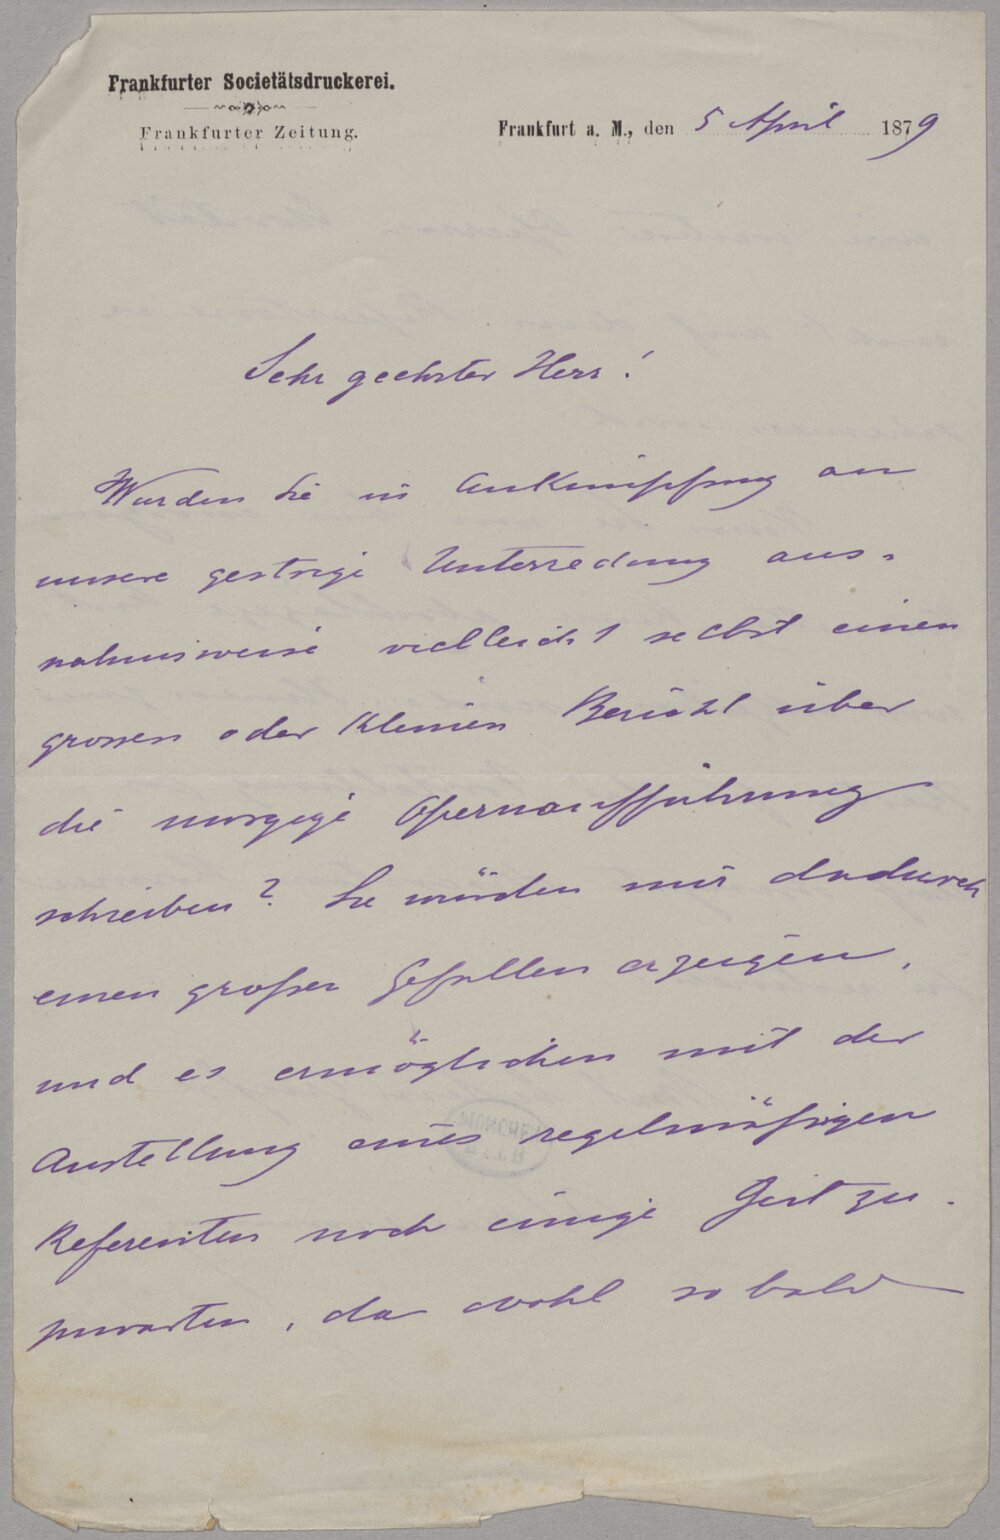 Frankfurter Societätsdruckerei.
Frankfurter Zeitung.
Frankfurt a. M., den 5 April 1879
Sehr geehrter Herr!
Würden Sie in Anknüpfung an
unsere gestrige Unterredung aus-
nahmsweise vielleicht selbst einen
grossen oder kleinen Bericht über
die morgige Opernaufführung
schreiben? Sie würden mir dadurch
einen großen Gefallen erzeigen,
und es ermöglichen mit der
Anstellung eines regelmäßigen
Referenten noch einige Zeit zu-
zuwarten, da wohl so bald
MÜNCHEN